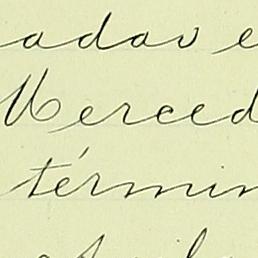 adav e
Merced
términ